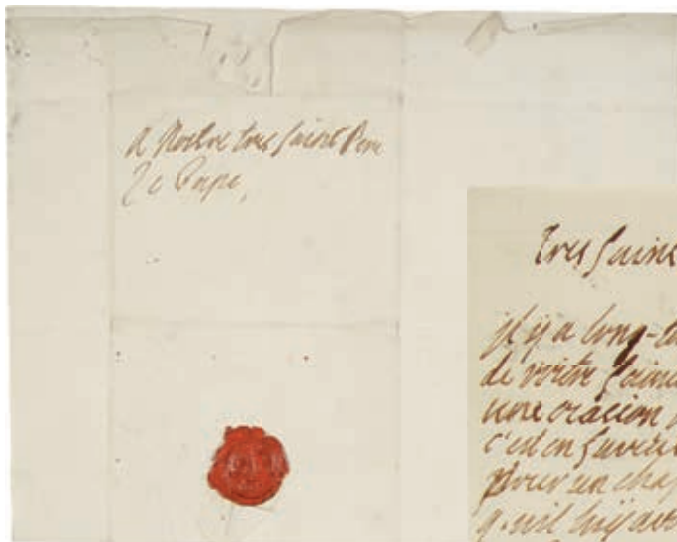 A Nostre tres saint Pere
Le Pape,
tres sainc
jl y a long-te
de vostre sainc
une oracion
c'est en faveu
pour un cha
q. uil luy